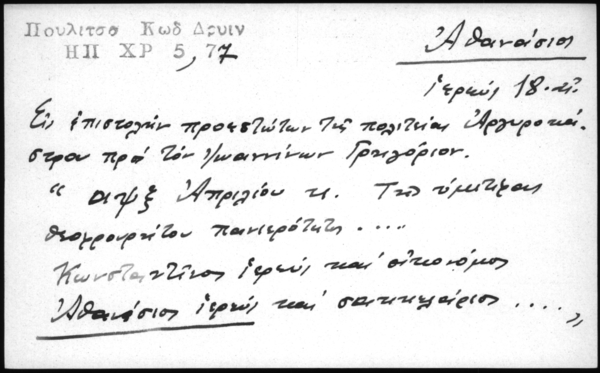 Πουλιτσα Κωδ Δρυιν
ΗΠ ΧΡ 5, 77
Ἀθανάσιος
ἱερεύς 18. αἰ.
Εἰς ἐπιστολήν προεστώτων τῆς πολιτείας Ἀργυροκά-
στρου πρό τόν Ἰωαννίνων Γρηγόριον.
“ αψξ Ἀπριλίου κ. Τῆς ὑμετέρας
θεοφρουρήτου πανιερότητος ....
Κωνσταντῖνος ἱερεύς καί οἰκονόμος
Ἀθανάσιος ἱερεύς καί σακκελάριος .... „